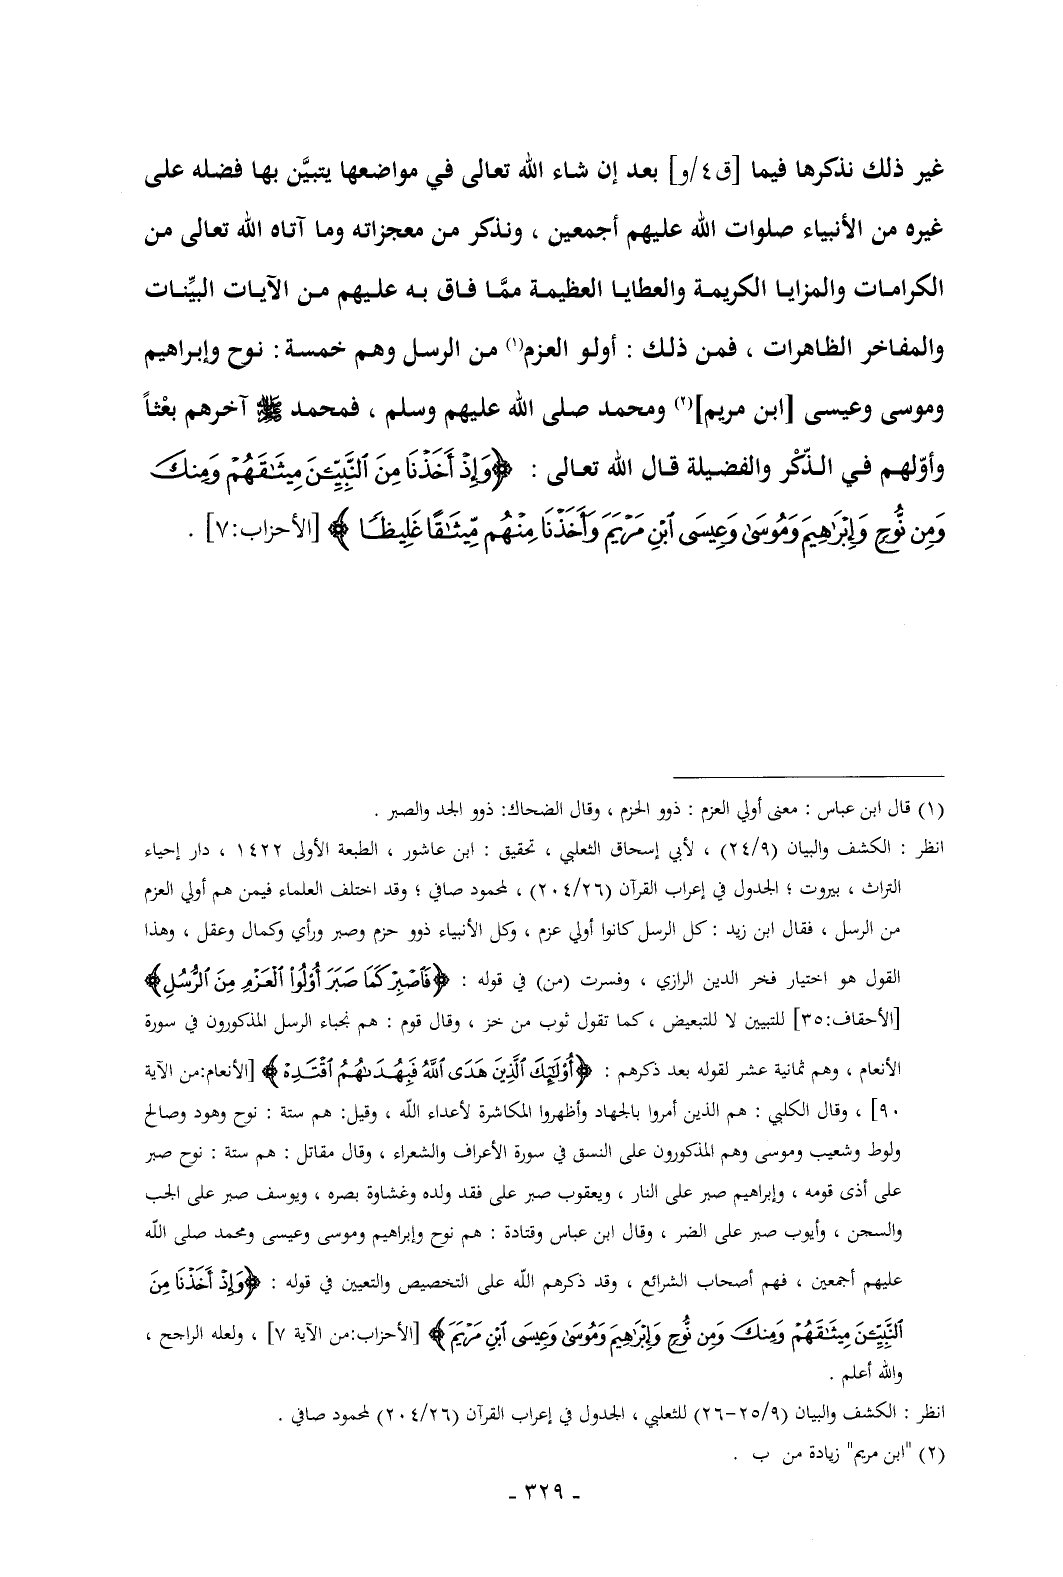 غير ذلك نذكرها فيما [ق٤/و] بعد إن شاء الله تعالى في مواضعها يتبيَّن بها فضله على
غيره من الأنبياء صلوات الله عليهم أجمعين ، ونذكر من معجزاته وما آتاه الله تعالى من
الكرامات والمزايا الكريمة والعطايا العظيمة ممَّا فاق به عليهم من الآيات البيِّنات
والمفاخر الظاهرات ، فمن ذلك : أولو العزم(١) من الرسل وهم خمسة : نوح وإبراهيم
وموسى وعيسى [ابن مريم](٢) ومحمد صلى الله عليهم وسلم ، فمحمد ﷺ آخرهم بعْثاً
وأوّلهم في الذّكْر والفضيلة قال الله تعالى : ﴿وَإِذْ أَخَذْنَا مِنَ ٱلنَّبِيِّـۧنَ مِيثَـٰقَهُمْ وَمِنكَ
وَمِن نُّوحٍ وَإِبْرَٰهِيمَ وَمُوسَىٰ وَعِيسَى ٱبْنِ مَرْيَمَ وَأَخَذْنَا مِنْهُم مِّيثَـٰقًا غَلِيظًا ﴾ [الأحزاب:٧] .
(١) قال ابن عباس : معنى أولي العزم : ذوو الحزم ، وقال الضحاك: ذوو الجد والصبر .
انظر : الكشف والبيان (٢٤/٩) ، لأبي إسحاق الثعلبي ، تحقيق : ابن عاشور ، الطبعة الأولى ١٤٢٢ ، دار إحياء
التراث ، بيروت ؛ الجدول في إعراب القرآن (٢٠٤/٢٦) ، لمحمود صافي ؛ وقد اختلف العلماء فيمن هم أولي العزم
من الرسل ، فقال ابن زيد : كل الرسل كانوا أولي عزم ، وكل الأنبياء ذوو حزم وصبر ورأي وكمال وعقل ، وهذا
القول هو اختيار فخر الدين الرازي ، وفسرت (من) في قوله : ﴿فَٱصْبِرْ كَمَا صَبَرَ أُوْلُوا۟ ٱلْعَزْمِ مِنَ ٱلرُّسُلِ﴾
[الأحقاف:٣٥] للتبيين لا للتبعيض ، كما تقول ثوب من خز ، وقال قوم : هم نجباء الرسل المذكورون في سورة
الأنعام ، وهم ثمانية عشر لقوله بعد ذكرهم : ﴿أُوْلَـٰٓئِكَ ٱلَّذِينَ هَدَى ٱللَّهُ فَبِهُدَىٰهُمُ ٱقْتَدِهْ ﴾ [الأنعام:من الآية
٩٠] ، وقال الكلبي : هم الذين أمروا بالجهاد وأظهروا المكاشرة لأعداء الله ، وقيل: هم ستة : نوح وهود وصالح
ولوط وشعيب وموسى وهم المذكورون على النسق في سورة الأعراف والشعراء ، وقال مقاتل : هم ستة : نوح صبر
على أذى قومه ، وإبراهيم صبر على النار ، ويعقوب صبر على فقد ولده وغشاوة بصره ، ويوسف صبر على الجب
والسجن ، وأيوب صبر على الضر ، وقال ابن عباس وقتادة : هم نوح وإبراهيم وموسى وعيسى ومحمد صلى الله
عليهم أجمعين ، فهم أصحاب الشرائع ، وقد ذكرهم الله على التخصيص والتعيين في قوله : ﴿وَإِذْ أَخَذْنَا مِنَ
ٱلنَّبِيِّـۧنَ مِيثَـٰقَهُمْ وَمِنكَ وَمِن نُّوحٍ وَإِبْرَٰهِيمَ وَمُوسَىٰ وَعِيسَى ٱبْنِ مَرْيَمَ ﴾ [الأحزاب:من الآية ٧] ، ولعله الراجح ،
والله أعلم .
انظر : الكشف والبيان (٢٥/٩-٢٦) للثعلبي ، الجدول في إعراب القرآن (٢٠٤/٢٦) لمحمود صافي .
(٢) "ابن مريم" زيادة من ب .
- ٣٢٩ -